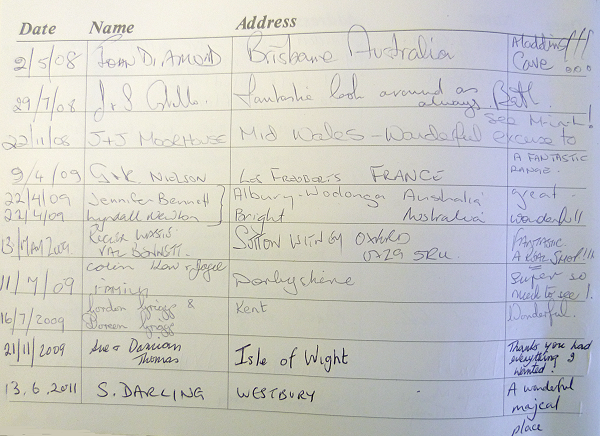 Date Name Address
2/5/08 JOAN DIAMOND Brisbane Australia Aladdins!!!
Cave...
29/7/08 J+S Fantastic look around as
always. Bath.
see Mint!
22/11/08 J+J MOOREHOUSE Mid Wales - Wonderful excuse to
9/4/09 G+R NIELSON LES FRANCE A FANTASTIC
RANGE.
22/4/09 Jennifer Bennett Albury-Wodonga Australia great.
22/4/09 Lyndall Newton Bright Australia wonderful!
13/MAY/2009 SUTTON WITNEY OXFORD FANTASTIC
VAL BENNETT. OX29 5RU. A REAL SHOP!!!
11/7/09 Colin Derbyshire super so
much to see!
16/7/2009 Gordon Griggs & Kent Wonderful.
Doreen Griggs
21/11/2009 Sue + Damian Isle of Wight Thanks you had
Thomas everything I
wanted!
13.6.2011 S. DARLING WESTBURY A wonderful
majcal
place